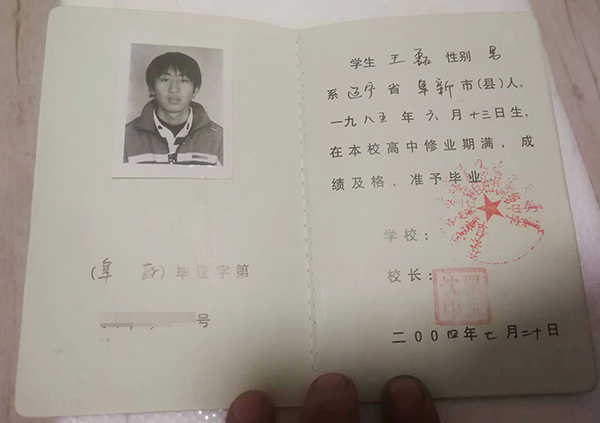 (阜 高)毕证字第
号
学生 王磊 性别 男
系辽宁省 阜新市(县)人,
一九八五年 六月十三日生,
在本校高中修业期满,成
绩及格,准予毕业
学校:
校长:
二00四年七月二十日